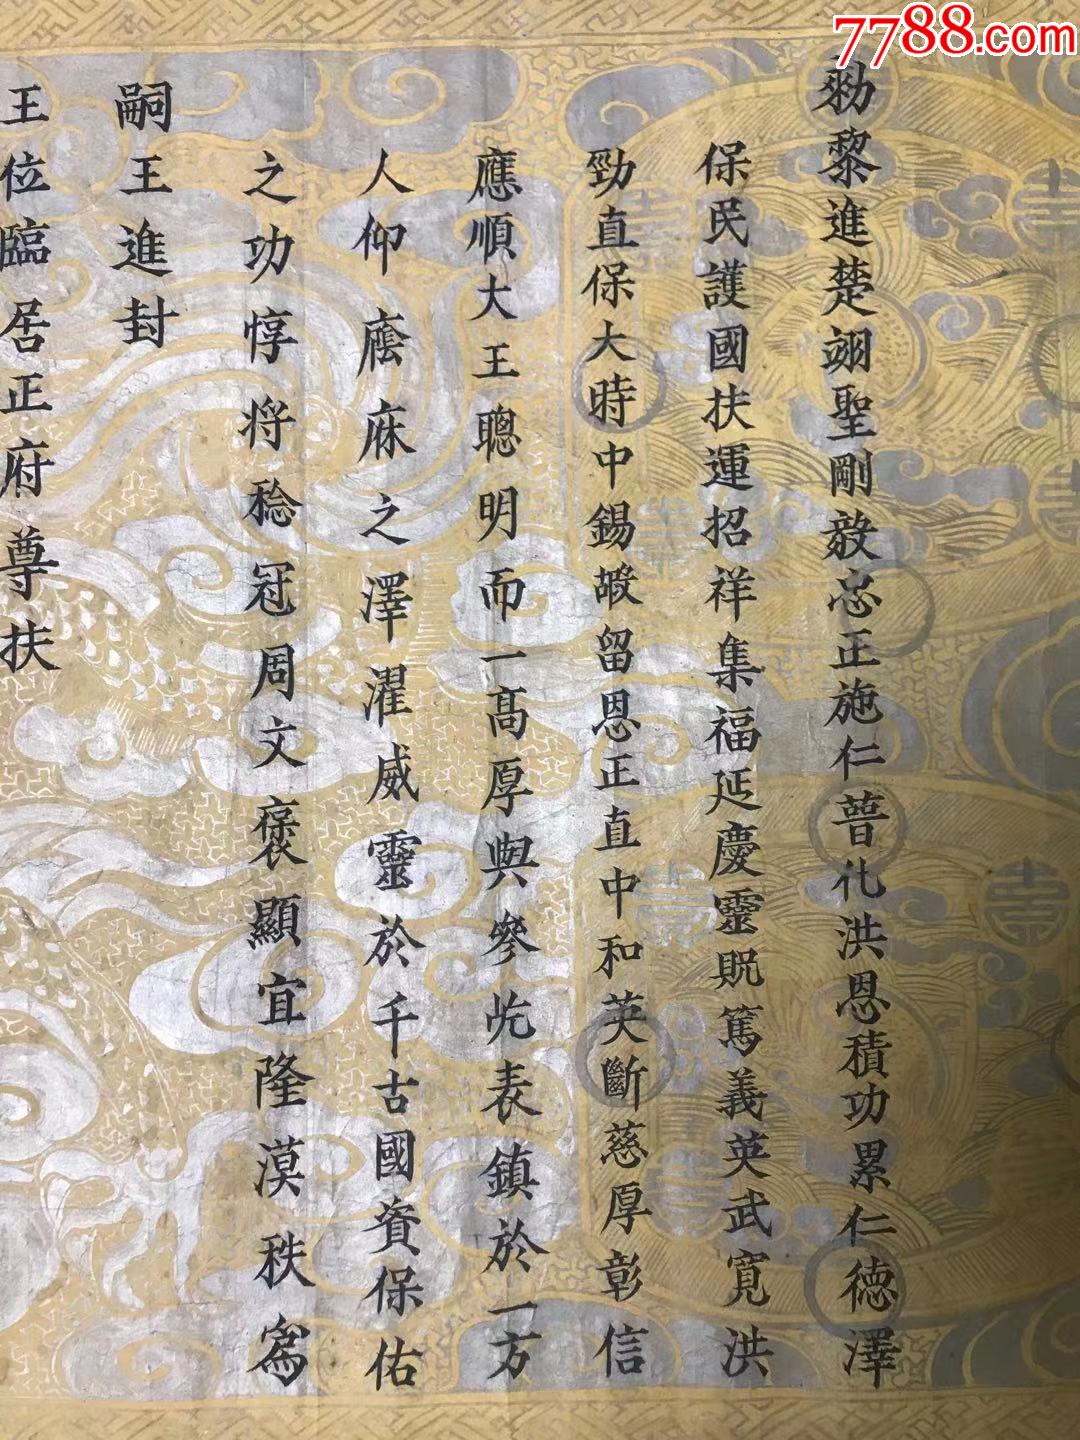 7788.com
勑黎進楚翊聖剛毅忠正施仁普化洪恩積功累仁德澤
保民護國扶運招祥集福延慶靈貺篤義英武寬洪
勁直保大時中錫嘏留恩正直中和英斷慈厚彰信
應順大王聰明而一高厚與參屹表鎮於一方
人仰廕庥之澤濯威靈於千古國資保佑
之功惇将稔冠周文褒顯宜隆漠秩爲
嗣王進封
王位臨居正府尊扶